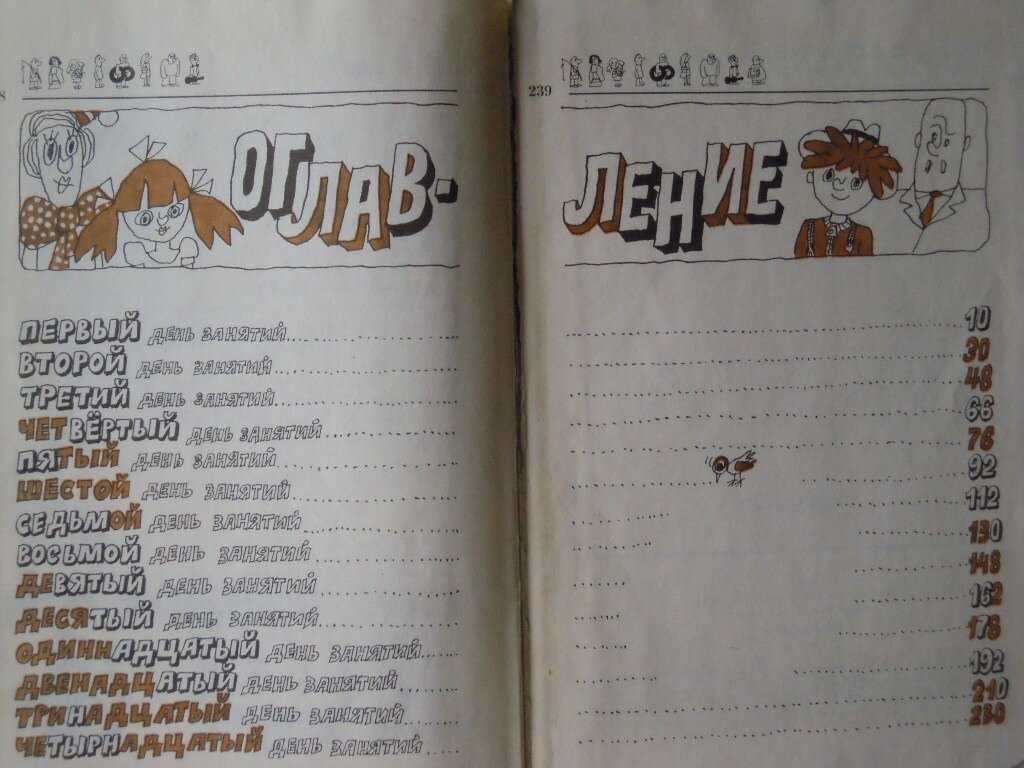 8
239
ОГЛАВ-
ЛЕНИЕ
ПЕРВЫЙ ДЕНЬ ЗАНЯТИЙ 10
ВТОРОЙ ДЕНЬ ЗАНЯТИЙ 30
ТРЕТИЙ ДЕНЬ ЗАНЯТИЙ 48
ЧЕТВЁРТЫЙ ДЕНЬ ЗАНЯТИЙ 66
ПЯТЫЙ ДЕНЬ ЗАНЯТИЙ 76
ШЕСТОЙ ДЕНЬ ЗАНЯТИЙ 92
СЕДЬМОЙ ДЕНЬ ЗАНЯТИЙ 112
ВОСЬМОЙ ДЕНЬ ЗАНЯТИЙ 130
ДЕВЯТЫЙ ДЕНЬ ЗАНЯТИЙ 148
ДЕСЯТЫЙ ДЕНЬ ЗАНЯТИЙ 162
ОДИННАДЦАТЫЙ ДЕНЬ ЗАНЯТИЙ 176
ДВЕНАДЦАТЫЙ ДЕНЬ ЗАНЯТИЙ 192
ТРИНАДЦАТЫЙ ДЕНЬ ЗАНЯТИЙ 210
ЧЕТЫРНАДЦАТЫЙ ДЕНЬ ЗАНЯТИЙ 230